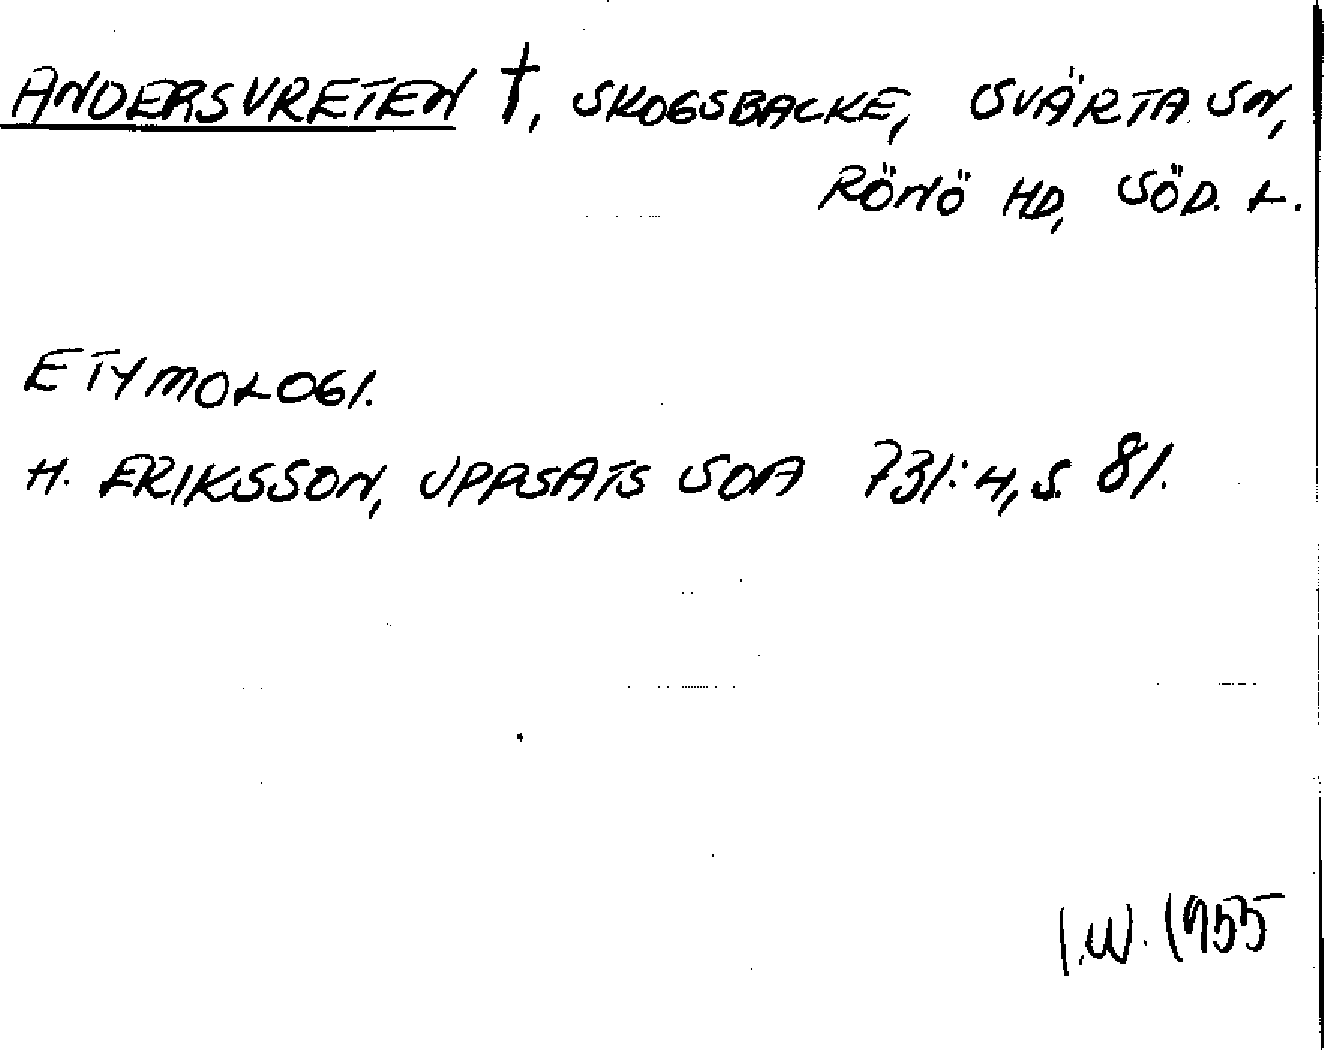 ANDERSVRETEN †, SKOGSBACKE, SVÄRTA SN,
RÖNÖ HD, SÖD. L.
ETYMOLOGI.
H. ERIKSSON, UPPSATS SOA 731:4, S. 81.
I.W. 1955